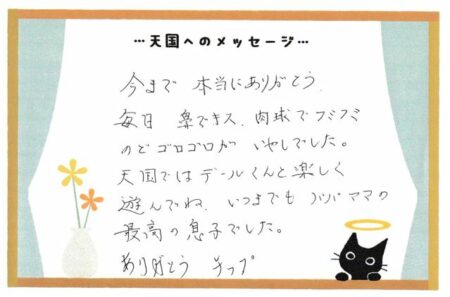 …天国へのメッセージ…
今まで 本当にありがとう
毎日 鼻でキス、肉球でフミフミ
のどゴロゴロが いやしでした。
天国ではデールくんと楽しく
遊んでね、いつまでも パパママの
最高の息子でした。
ありがとう チップ